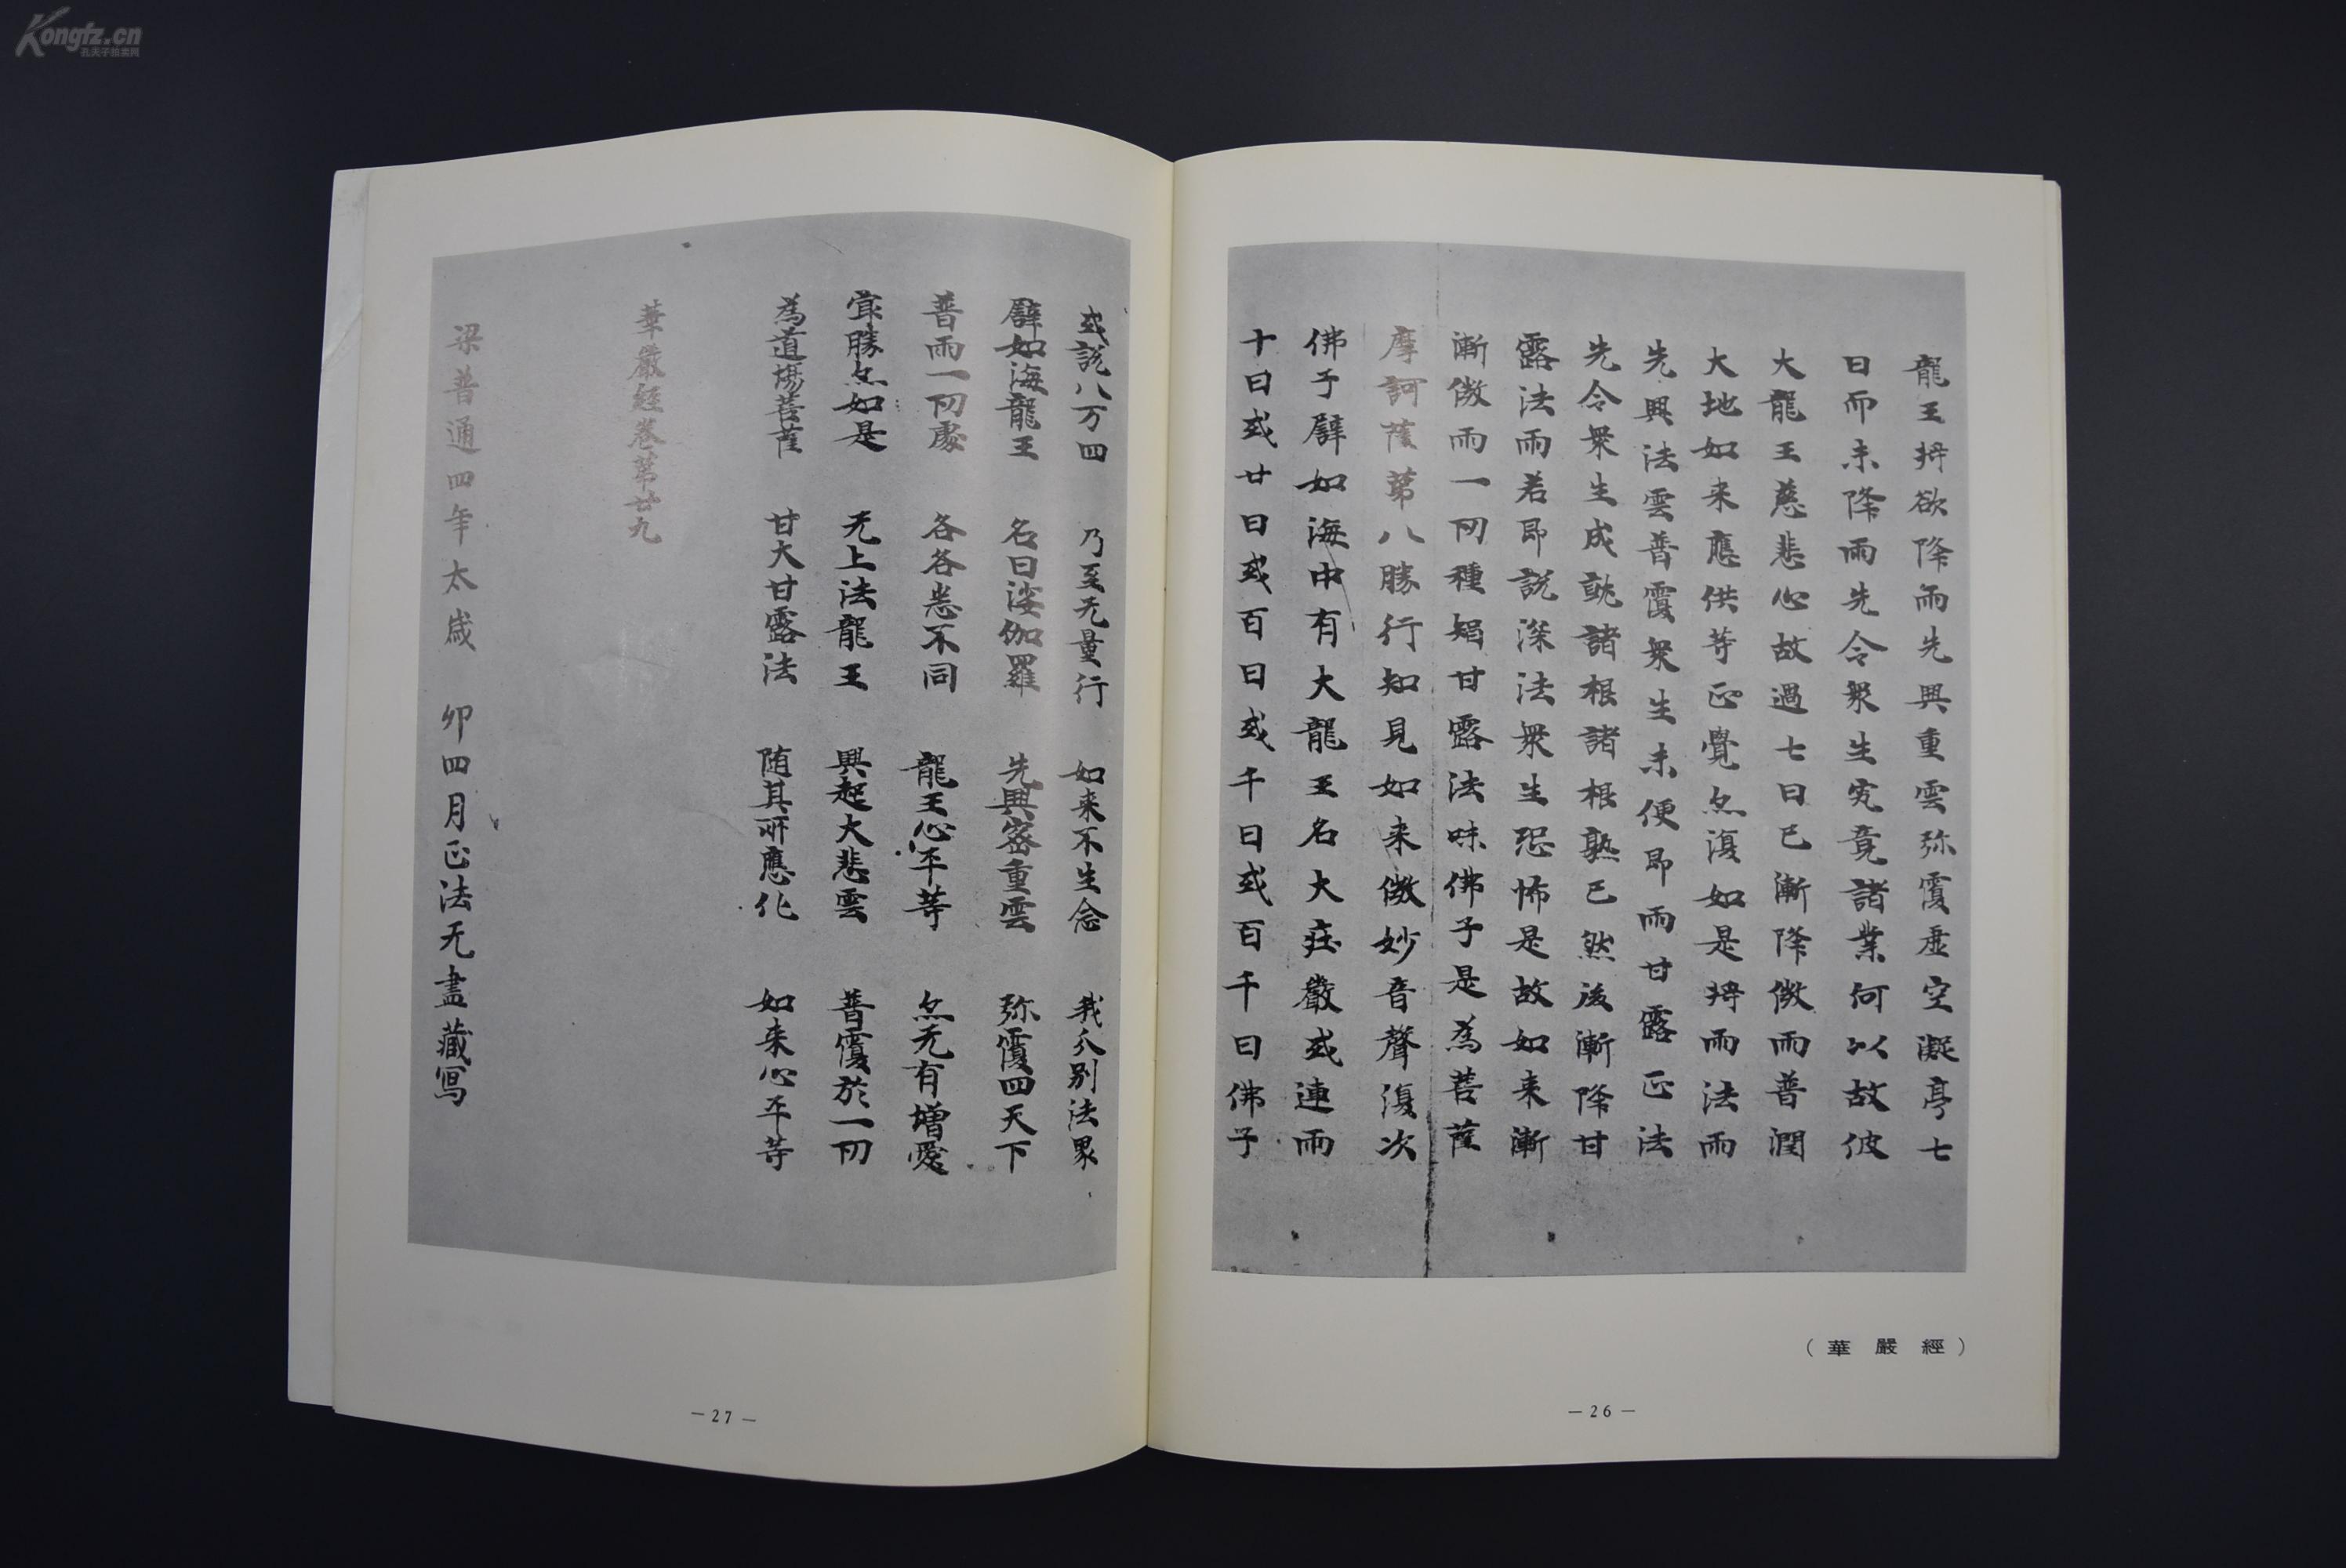 龍王將欲降雨先興重雲弥覆虛空凝亭七
日而未降雨先令衆生究竟諸業何以故彼
大龍王慈悲心故過七日已漸降微雨普潤
大地如来應供等正覺亦復如是將雨法雨
先興法雲普覆衆生未便即雨甘露正法
先令衆生成就諸根諸根熟已然後漸降甘
露法雨若即說深法衆生恐怖是故如来漸
漸微雨一切種智甘露法味佛子是為菩薩
摩訶薩第八勝行知見如来微妙音聲復次
佛子譬如海中有大龍王名大庄嚴或連雨
十日或廿日或百日或千日或百千日佛子
(華嚴經)
—26—
或說八万四 乃至无量行 如来不生念 我分別法界
譬如海龍王 名曰娑伽羅 先興密重雲 弥覆四天下
普雨一切處 各各悉不同 龍王心平等 亦无有增愛
冣勝亦如是 无上法龍王 興起大悲雲 普覆於一切
為道場菩薩 甘大甘露法 随其所應化 如来心平等
華嚴經卷第廿九
梁普通四年太歲 卯四月正法无盡藏寫
—27—
Kongfz.cn
孔夫子拍卖网